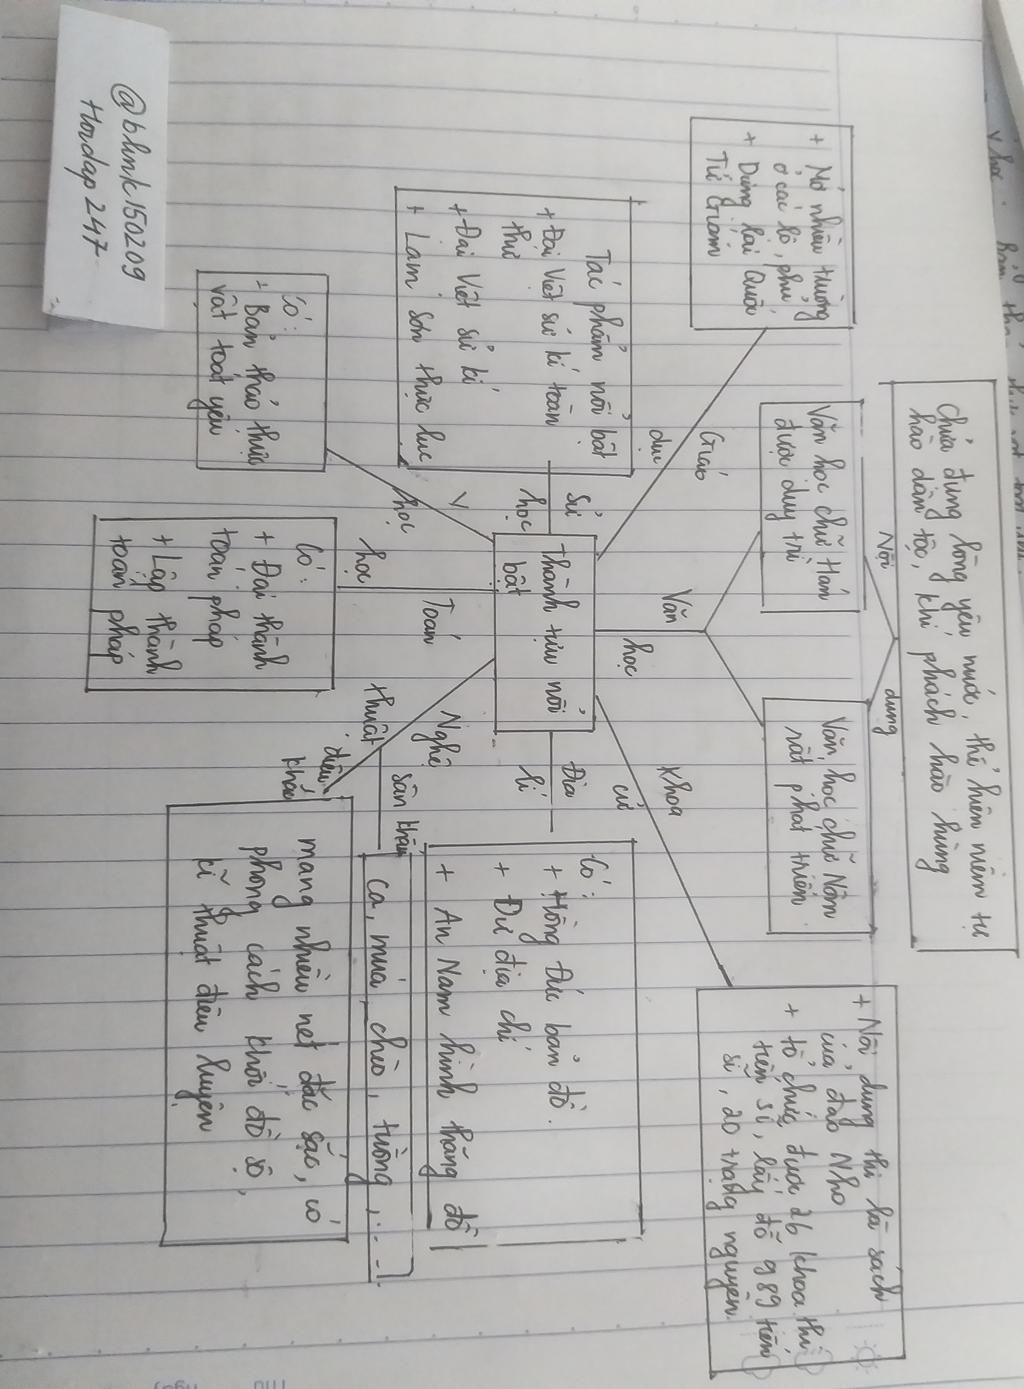 Chứa đựng lòng yêu nước, thể hiện niềm tự
hào dân tộc, khí phách hào hùng
Nội
dung
+ Mở nhiều trường
ở các lộ, phủ
+ Dựng lại Quốc
Tử Giám
Văn học chữ Hán
được duy trì
Văn học chữ Nôm
rất phát triển
+ Nội dung thi là sách
của đạo Nho
+ tổ chức được 26 khoa thi
tiến sĩ, lấy đỗ 989 tiến
sĩ, 20 trạng nguyên.
Giáo
dục
Văn
học
Khoa
cử
Tác phẩm nổi bật
+ Đại Việt sử kí toàn
thư
+ Đại Việt sử kí
+ Lam Sơn thực lục
Sử
học
Thành tựu nổi
bật
Địa
lí
Có:
+ Hồng Đức bản đồ.
+ Dư địa chí
+ An Nam hình thăng đồ
Y
học
Toán
học
Nghệ
thuật
sân khấu
điêu
khắc
Ca, múa, chèo, tuồng, ...
Có:
- Bản thảo thực
vật toát yếu
Có:
+ Đại thành
toán pháp
+ Lập thành
toán pháp
mang nhiều nét đặc sắc, có
phong cách khối đồ sộ,
kĩ thuật điêu luyện
@blink150209
Hoidap247